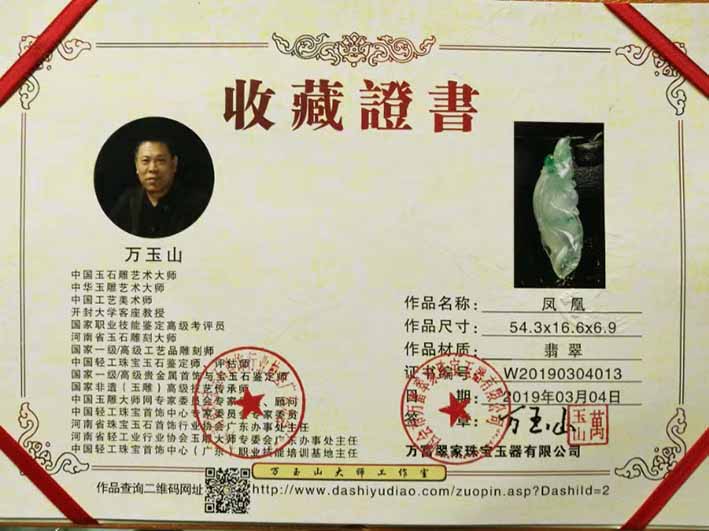 收藏證書
万玉山
中国玉石雕艺术大师
中华玉雕艺术大师
中国工艺美术师
开封大学客座教授
国家职业技能鉴定高级考评员
河南省玉石雕刻大师
国家一级/高级工艺品雕刻师
中国轻工珠宝玉石鉴定师、评估师
国家一级/高级贵金属首饰与宝玉石鉴定师
国家非遗（玉雕）高级技艺传承师
中国玉雕大师网专家委员会专家、顾问
中国轻工珠宝首饰中心专家委员会专家委员
河南省珠宝玉石首饰行业协会广东办事处主任
河南省轻工业行业协会玉雕大师专委会广东办事处主任
中国轻工珠宝首饰中心（广东）职业技能培训基地主任
作品名称: 凤凰
作品尺寸: 54.3x16.6x6.9
作品材质: 翡翠
证书编号: W20190304013
日 期: 2019年03月04日
签 章: 万玉山
萬玉山
万富翠家珠宝玉器有限公司
万玉山大师工作室
作品查询二维码网址 http://www.dashiyudiao.com/zuopin.asp?DashiId=2